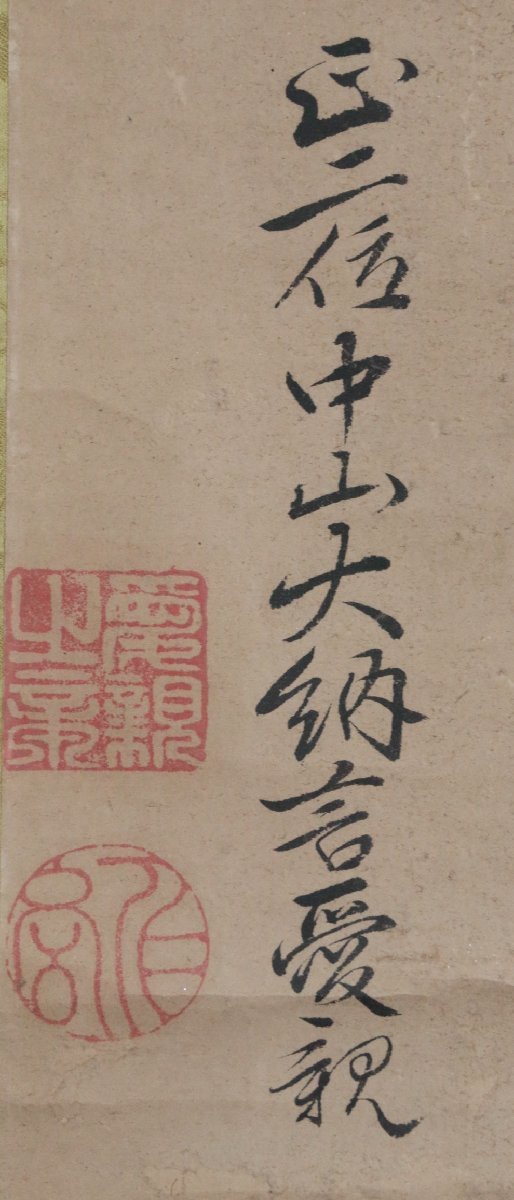 正二位中山大納言愛親
愛親之章